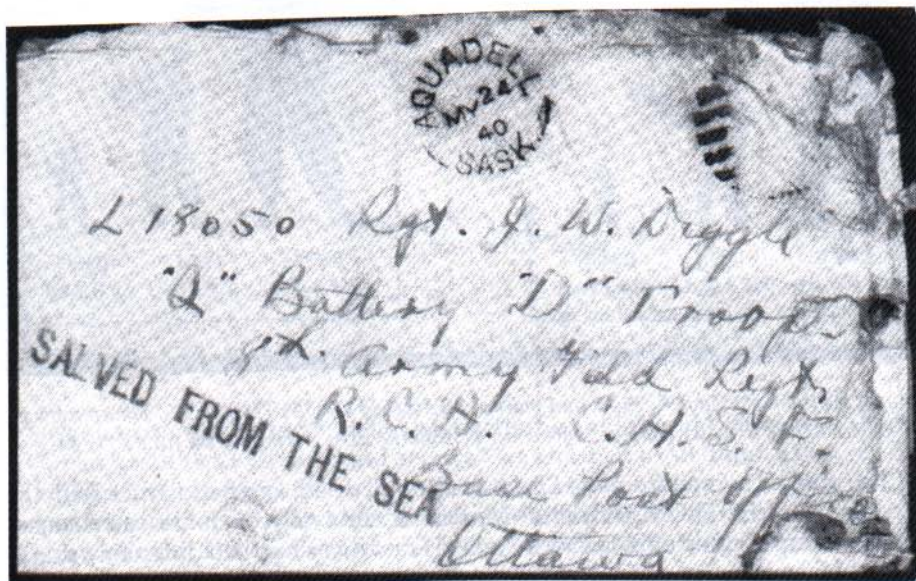 AQUADELL
MY 24
40
SASK.
L 18050 Rgt. J. W. Diggle
"Q" Battery "D" Troop
8th. Army Field Regt.
R. C. A. C. A. S. F.
Base Post Office
Ottawa
SALVED FROM THE SEA